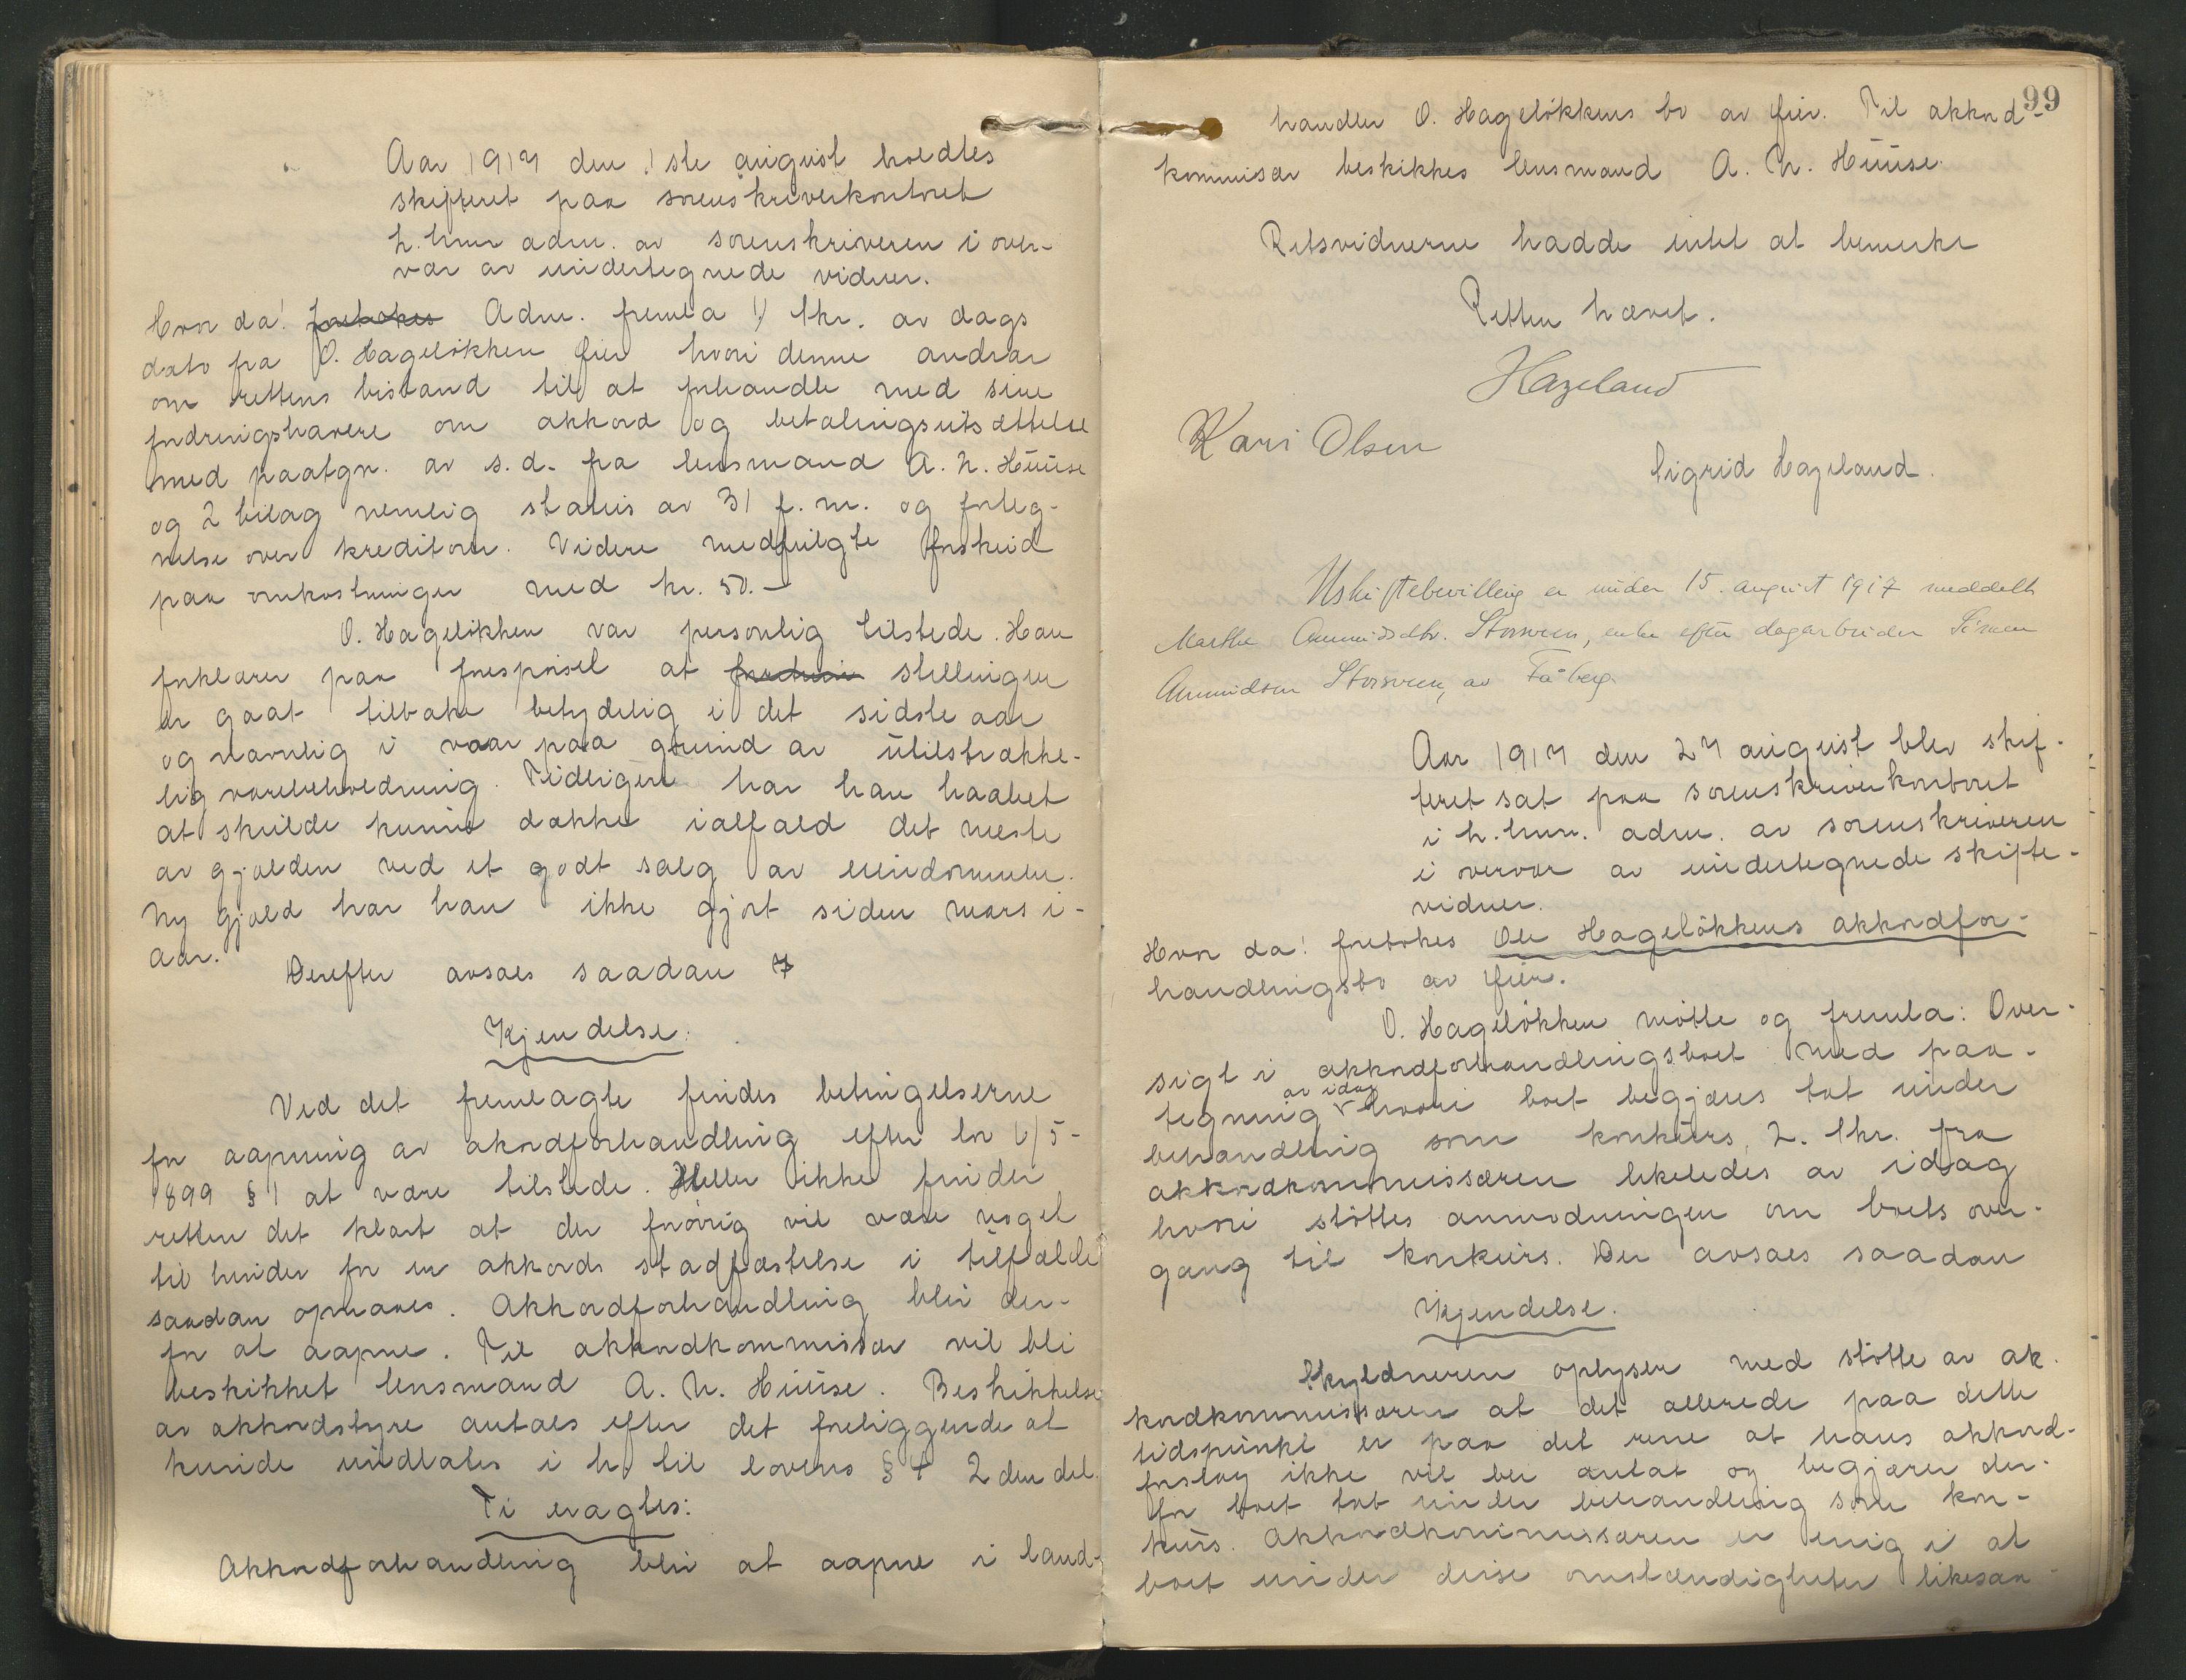 Aar 1917 den 1ste august holdtes
skifteret paa sorenskriverkontoret
L.hmr adm. av sorenskriveren i over-
vær av undertegnede vidner.
Hvor da! foretokes Adm. fremla 1) skr. av dags
dato fra O. Hageløkken Øier hvori denne andrar
om rettens bistand til at forhandle med sine
fordringshavere om akkord og betalingsutsættelse
med paategn. av s.d. fra lensmand A. N. Huuse
og 2 bilag nemlig status av 31 f. m. og forteg-
nelse over kreditorer. Videre medfulgte forskud
paa omkostninger med kr. 50.-
O. Hageløkken var personlig tilstede. Han
forklarer paa forespørsel at stillingen
er gaat tilbake betydelig i det sidste aar
og navnlig i vaar paa grund av utilstrække-
lig varebeholdning. Tidligere har han haabet
at skulde kunne dække ialfald det meste
av gjælden ved et godt salg av eiendommen.
Ny gjæld har han ikke gjort siden mars i-
aar.
Derefter avsaes saadan
Kjendelse:
Ved det fremlagte findes betingelserne
for aapning av akordforhandling efter lov 6/5-
1899 § 1 at være tilstede. Heller ikke finder
retten det klart at der forøvrig vil være noget
til hinder for en akkords stadfæstelse i tilfælde
saadan opnaaes. Akkordforhandling blir der-
for at aapne. Til akkordkommissær vil bli
beskikket lensmand A. N. Huuse. Beskikkelse
av akkordstyre antaes efter det foreliggende at
kunde undlates i h. til lovens § 4 2den del.
Ti eragtes:
Akkordforhandling blir at aapne i land-
99
handler O. Hageløkkens bo av Øier. Til akkord-
kommisær beskikkes lensmand A. N. Huuse.
Retsvidnerne hadde intet at bemerke
Retten hævet.
Hazeland
Kari Olsen
Sigrid Hazeland.
Uskiftebevilling er under 15. august 1917 meddelt
Marthe Amundsdtr. Storsveen, enke efter dagarbeider Simen
Amundsen Storsveen, av Fåberg
Aar 1917 den 27 august blev skif-
teret sat paa sorenskriverkontoret
i L.hmr. adm. av sorenskriveren
i overvær av undertegnede skifte-
vidner.
Hvor da! foretokes Ole Hageløkkens akkordfor-
handlingsbo av Øier.
O. Hageløkken møtte og fremla: Over-
sigt i akkordforhandlingsboet med paa-
tegning av idag hvori boet begjæres tat under
behandling som konkurs, 2. skr. fra
akkordkommissæren likeledes av idag
hvori støttes anmodningen om boets over-
gang til konkurs. Der avsaes saadan
Kjendelse.
Skyldneren oplyser med støtte av ak-
kordkommissæren at det allerede paa dette
tidspunkt er paa det rene at hans akkord-
forslag ikke vil bli antat og begjærer der-
for boet tat under behandling som kon-
kurs. Akkordkommissæren er enig i at
boet under disse omstændigheter likesaa